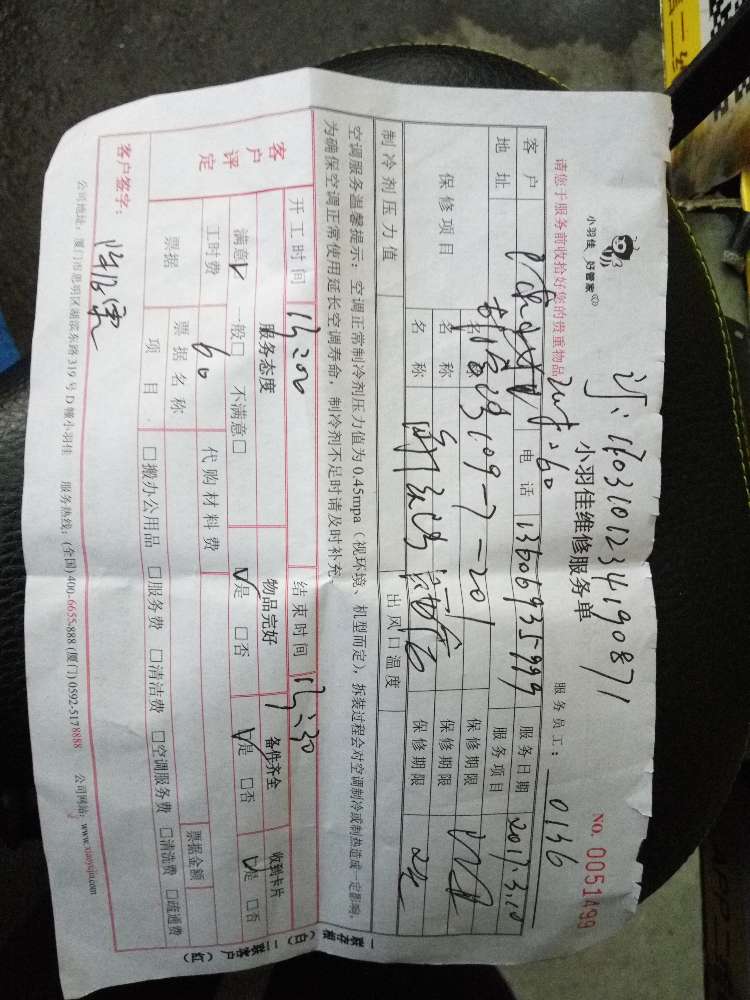 小羽佳 好管家
小羽佳维修服务单
1703101234190871
NO. 0051499
请您于服务前收拾好您的贵重物品
服务员工: 0136
客户 电话 13606935999 服务日期 2017.3.10
地址 109-7-201 服务项目
保修项目 名称 保修期限
名称 保修期限
名称 保修期限
制冷剂压力值 出风口温度
空调服务温馨提示: 空调正常制冷剂压力值为0.45mpa(视环境、机型而定), 拆装过程会对空调制冷或制热造成一定影响,
为确保空调正常使用延长空调寿命, 制冷剂不足时请及时补充。
开工时间 15:00 结束时间 15:30
客户评定 服务态度 物品完好 备件齐全 收到卡片
满意☑ 一般□ 不满意□ ☑是 □否 ☑是 □否 ☑是 □否
工时费 60 代购材料费
票据 票据名称 票据金额
项目 □搬办公用品 □服务费 □清洁费 □空调服务费 □清洗费 □疏通费
客户签字:
公司地址: 厦门市思明区湖滨东路319号D幢小羽佳 服务热线: (全国)400-6655-888 (厦门)0592-5178888 公司网站: www.xiaoyujia.com
一联存根(白) 二联客户(红)